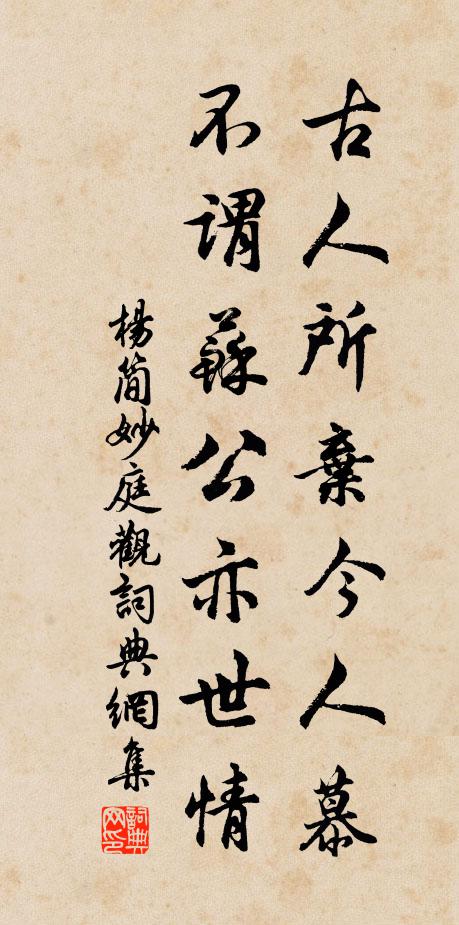 古人所棄今人慕
不謂蘇公亦世情
楊簡妙庭觀詞典網集
詞典网印